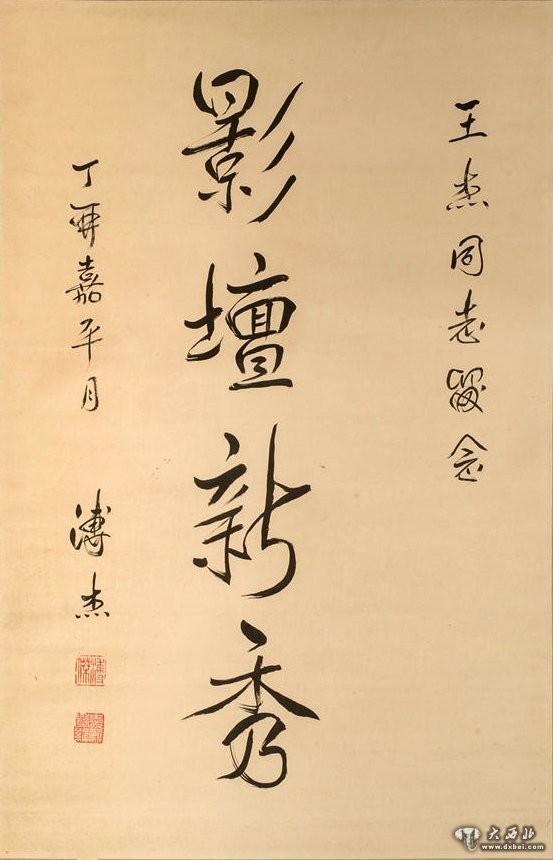 王杰同志留念
影壇新秀
丁卯嘉平月 溥杰
溥傑
大西北
www.dxbei.com